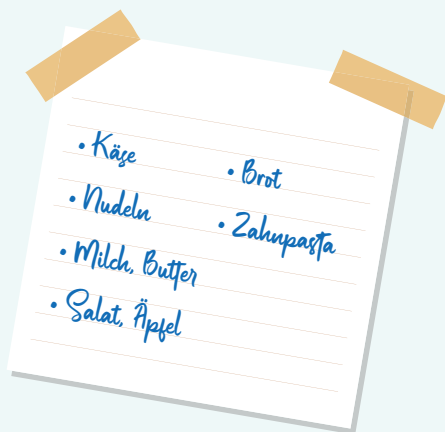 • Käse
• Nudeln
• Milch, Butter
• Salat, Äpfel
• Brot
• Zahnpasta